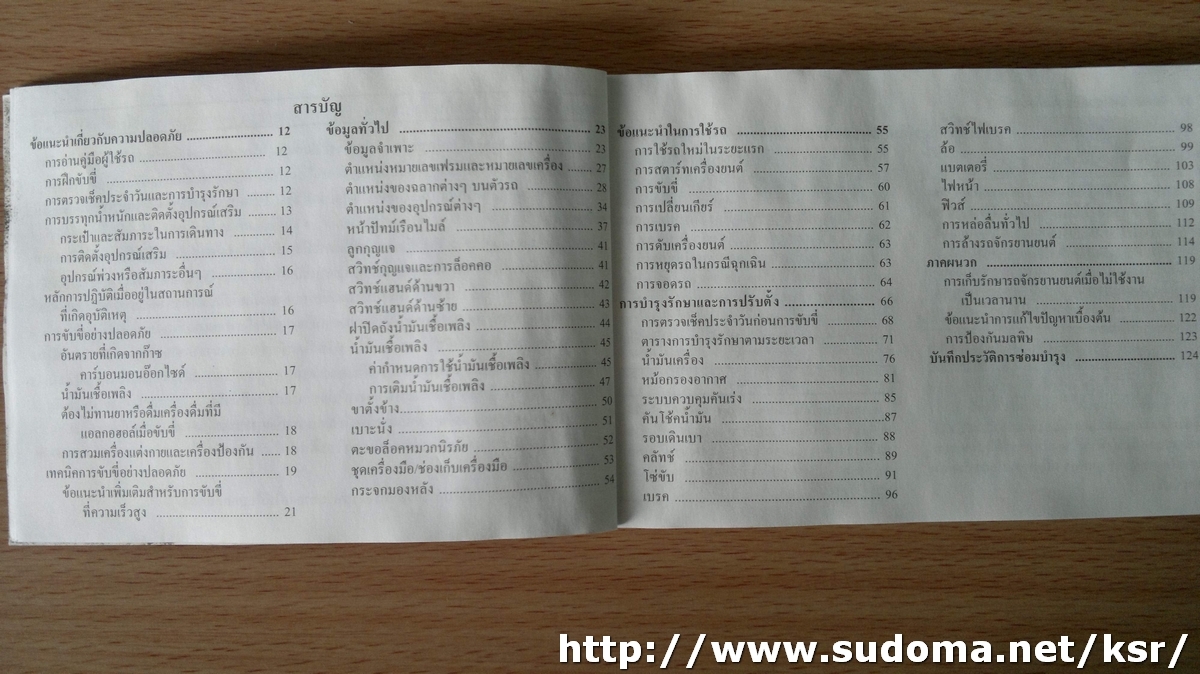 สารบัญ
ข้อแนะนำเกี่ยวกับความปลอดภัย ........................ 12
การอ่านคู่มือผู้ใช้รถ ........................ 12
การฝึกขับขี่ ........................ 12
การตรวจเช็คประจำวันและการบำรุงรักษา ........ 12
การบรรทุกน้ำหนักและติดตั้งอุปกรณ์เสริม ...... 13
กระเป๋าและสัมภาระในการเดินทาง ........... 14
การติดตั้งอุปกรณ์เสริม ........................ 15
อุปกรณ์พ่วงหรือสัมภาระอื่นๆ ................ 16
หลักการปฏิบัติเมื่ออยู่ในสถานการณ์
ที่เกิดอุบัติเหตุ ........................ 16
การขับขี่อย่างปลอดภัย ........................ 17
อันตรายที่เกิดจากก๊าซ
คาร์บอนมอนอ๊อกไซด์ ................ 17
น้ำมันเชื้อเพลิง ........................ 17
ต้องไม่ทานยาหรือดื่มเครื่องดื่มที่มี
แอลกอฮอล์เมื่อขับขี่ ................ 18
การสวมเครื่องแต่งกายและเครื่องป้องกัน ...... 18
เทคนิคการขับขี่อย่างปลอดภัย ................ 19
ข้อแนะนำเพิ่มเติมสำหรับการขับขี่
ที่ความเร็วสูง ........................ 21
ข้อมูลทั่วไป ........................ 23
ข้อมูลจำเพาะ ........................ 23
ตำแหน่งหมายเลขเฟรมและหมายเลขเครื่อง ...... 27
ตำแหน่งของฉลากต่างๆ บนตัวรถ ................ 28
ตำแหน่งของอุปกรณ์ต่างๆ ................ 34
หน้าปัทม์เรือนไมล์ ........................ 37
ลูกกุญแจ ........................ 41
สวิทช์กุญแจและการล็อคคอ ................ 41
สวิทช์แฮนด์ด้านขวา ........................ 42
สวิทช์แฮนด์ด้านซ้าย ........................ 43
ฝาปิดถังน้ำมันเชื้อเพลิง ........................ 44
น้ำมันเชื้อเพลิง ........................ 45
ค่ากำหนดการใช้น้ำมันเชื้อเพลิง ................ 45
การเติมน้ำมันเชื้อเพลิง ................ 47
ขาตั้งข้าง........................ 50
เบาะนั่ง ........................ 51
ตะขอล็อคหมวกนิรภัย ........................ 52
ชุดเครื่องมือ/ช่องเก็บเครื่องมือ ................ 53
กระจกมองหลัง ........................ 54
ข้อแนะนำในการใช้รถ ........................ 55
การใช้รถใหม่ในระยะแรก ................ 55
การสตาร์ทเครื่องยนต์ ........................ 57
การขับขี่ ........................ 60
การเปลี่ยนเกียร์ ........................ 61
การเบรค ........................ 62
การดับเครื่องยนต์ ........................ 63
การหยุดรถในกรณีฉุกเฉิน ................ 63
การจอดรถ ........................ 64
การบำรุงรักษาและการปรับตั้ง ................ 66
การตรวจเช็คประจำวันก่อนการขับขี่ ........ 68
ตารางการบำรุงรักษาตามระยะเวลา ........ 71
น้ำมันเครื่อง ........................ 76
หม้อกรองอากาศ ........................ 81
ระบบควบคุมคันเร่ง ........................ 85
คันโช้คน้ำมัน ........................87
รอบเดินเบา ........................ 88
คลัทช์ ........................ 89
โซ่ขับ ........................ 91
เบรค ........................ 96
สวิทช์ไฟเบรค ........................ 98
ล้อ ........................ 99
แบตเตอรี่ ........................ 103
ไฟหน้า ........................ 108
ฟิวส์ ........................ 109
การหล่อลื่นทั่วไป ........................ 112
การล้างรถจักรยานยนต์ ................ 114
ภาคผนวก ........................ 119
การเก็บรักษารถจักรยานยนต์เมื่อไม่ใช้งาน
เป็นเวลานาน ................ 119
ข้อแนะนำการแก้ไขปัญหาเบื้องต้น ........ 122
การป้องกันมลพิษ ........................ 123
บันทึกประวัติการซ่อมบำรุง ................ 124
http://www.sudoma.net/ksr/